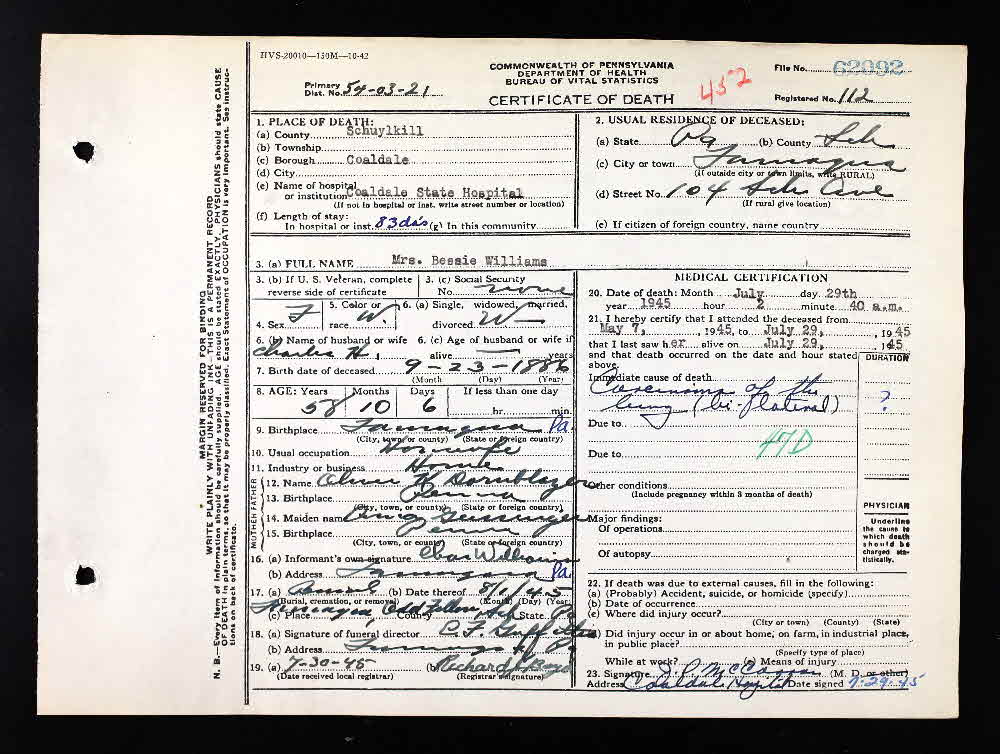 HVS-20010—150M—10-42
COMMONWEALTH OF PENNSYLVANIA
DEPARTMENT OF HEALTH
BUREAU OF VITAL STATISTICS
CERTIFICATE OF DEATH
Primary
Dist. No. 54-03-21
452
File No. 62092
Registered No. 112
MARGIN RESERVED FOR BINDING
WRITE PLAINLY WITH UNFADING INK—THIS IS A PERMANENT RECORD
N. B.—Every item of information should be carefully supplied. AGE should be stated EXACTLY. PHYSICIANS should state CAUSE
OF DEATH in plain terms, so that it may be properly classified. Exact Statement of OCCUPATION is very important. See instruc-
tions on back of certificate.
1. PLACE OF DEATH:
(a) County Schuylkill
(b) Township
(c) Borough Coaldale
(d) City
(e) Name of hospital
or institution Coaldale State Hospital
(If not in hospital or inst. write street number or location)
(f) Length of stay:
In hospital or inst. 83 da's (g) In this community
2. USUAL RESIDENCE OF DECEASED:
(a) State Pa (b) County Sch
(c) City or town Tamaqua
(If outside city or town limits, write RURAL)
(d) Street No. 104 Ave
(If rural give location)
(e) If citizen of foreign country, name country
3. (a) FULL NAME Mrs. Bessie Williams
3. (b) If U. S. Veteran, complete
reverse side of certificate
3. (c) Social Security
No. none
4. Sex F
5. Color or
race W.
6. (a) Single, widowed, married,
divorced W
6. (b) Name of husband or wife
Charles H.
6. (c) Age of husband or wife if
alive years
7. Birth date of deceased 9-23-1886
(Month (Day) (Year)
8. AGE: Years Months Days If less than one day
58 10 6 hr. min.
9. Birthplace Tamaqua Pa.
(City, town, or county) (State or foreign country)
10. Usual occupation Housewife
11. Industry or business Home
MOTHER FATHER
12. Name Oliver K Dornblazer
13. Birthplace Penna
(City, town, or county) (State or foreign country)
14. Maiden name
15. Birthplace Penna
(City, town, or county) (State or foreign country)
16. (a) Informant's own signature Chas Williams
(b) Address Tamaqua Pa.
17. (a) Burial (b) Date thereof 8/1/45
(Burial, cremation, or removal) (Month) (Day) (Year)
(c) Place Tamaqua, Odd Fellows County Sch State Pa
18. (a) Signature of funeral director
(b) Address Tamaqua Pa
19. (a) 7-30-45 (b) Richard
(Date received local registrar) (Registrar's signature)
MEDICAL CERTIFICATION
20. Date of death: Month July day 29th
year 1945 hour 2 minute 40 a.m.
21. I hereby certify that I attended the deceased from
May 7, 1945 to July 29, 1945
that I last saw her alive on July 29, 1945
and that death occurred on the date and hour stated
above. DURATION
Immediate cause of death
Carcinoma of the
lung (bi-lateral) ?
Due to
47D
Due to
Other conditions
(Include pregnancy within 3 months of death)
Major findings:
Of operations
Of autopsy
PHYSICIAN
Underline
the cause to
which death
should be
charged sta-
tistically.
22. If death was due to external causes, fill in the following:
(a) (Probably) Accident, suicide, or homicide (specify)
(b) Date of occurrence
(c) Where did injury occur?
(City or town) (County) (State)
(d) Did injury occur in or about home, on farm, in industrial place,
in public place?
(Specify type of place)
While at work? (e) Means of injury
23. Signature (M. D. or other)
Address Coaldale Date signed 7-29-45